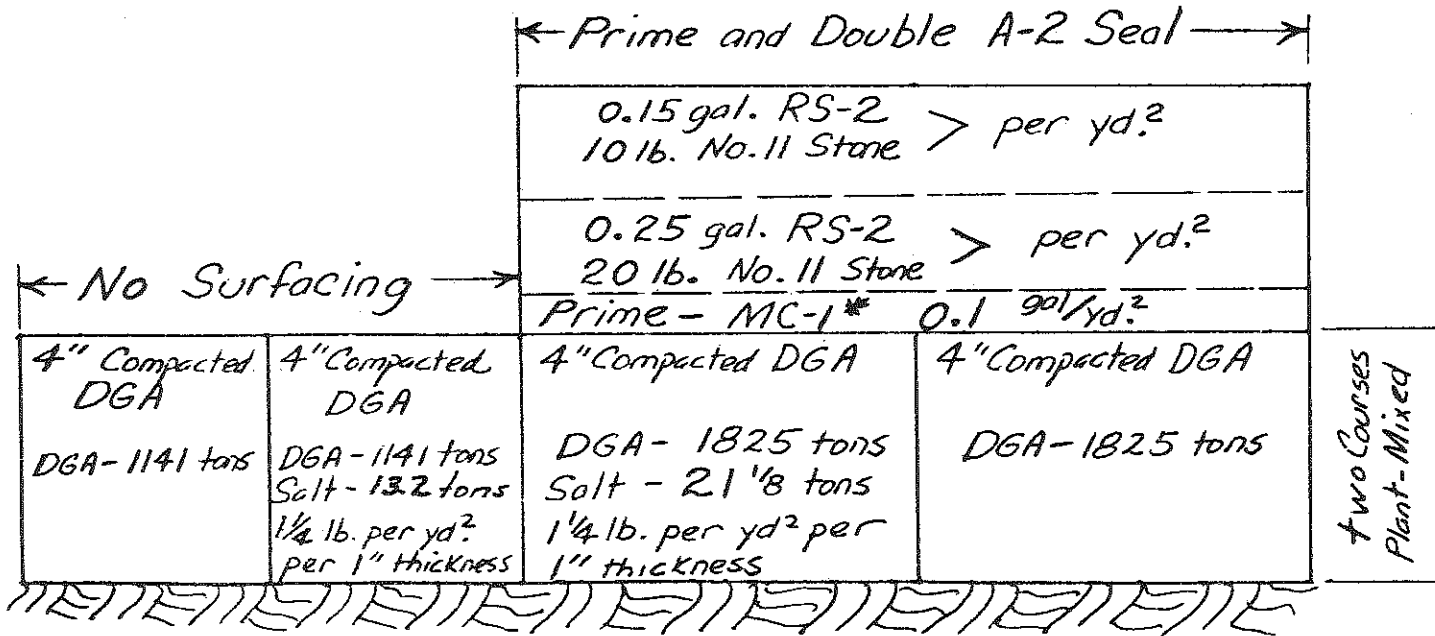 Prime and Double A-2 Seal
0.15 gal. RS-2
10 lb. No. 11 Stone > per yd.²
0.25 gal. RS-2
20 lb. No. 11 Stone > per yd.²
No Surfacing
Prime - MC-1* 0.1 gal/yd.²
4" Compacted
DGA
DGA - 1141 tons
4" Compacted
DGA
DGA - 1141 tons
Salt - 13.2 tons
1 1/4 lb. per yd.²
per 1" thickness
4" Compacted DGA
DGA - 1825 tons
Salt - 21 1/8 tons
1 1/4 lb. per yd² per
1" thickness
4" Compacted DGA
DGA - 1825 tons
two Courses
Plant-Mixed